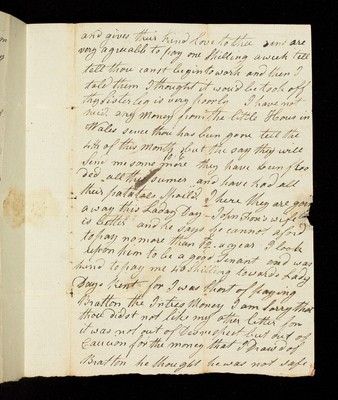 and gives thur kind love to thee and are
very agreeable to pay one Shilling a week till
till thou canst begin to work and then I
told them I thought it would be took off
thy Sister Leg is very poorly I have not
recd any Money from the little House in
Wales since thou has been gone till the
4th of this month but the say they will
send me some more they have been floo
ded all the sumer and have had all
their potatoes Spoild there they are gone
away this Laday Day John Fox's wife
is better and he says he cannot aford
to pay no more than 12 a year I look
upon him to be a good Tenant and was
kind to pay me Shilling towards Lady
Days Rent for I was Short of paying
Bratton the Intres Money I am Sorry that
thou didst not like my other letter for
it was not out of disrespect but out of
Caucion for the money that I Drawd of
Bratton he thought he was not safe